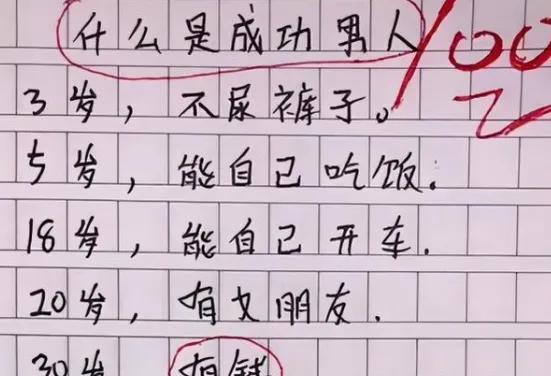 什么是成功男人
100
3岁，不尿裤子。
5岁，能自己吃饭.
18岁，能自己开车.
20岁，有女朋友.
30岁 有钱